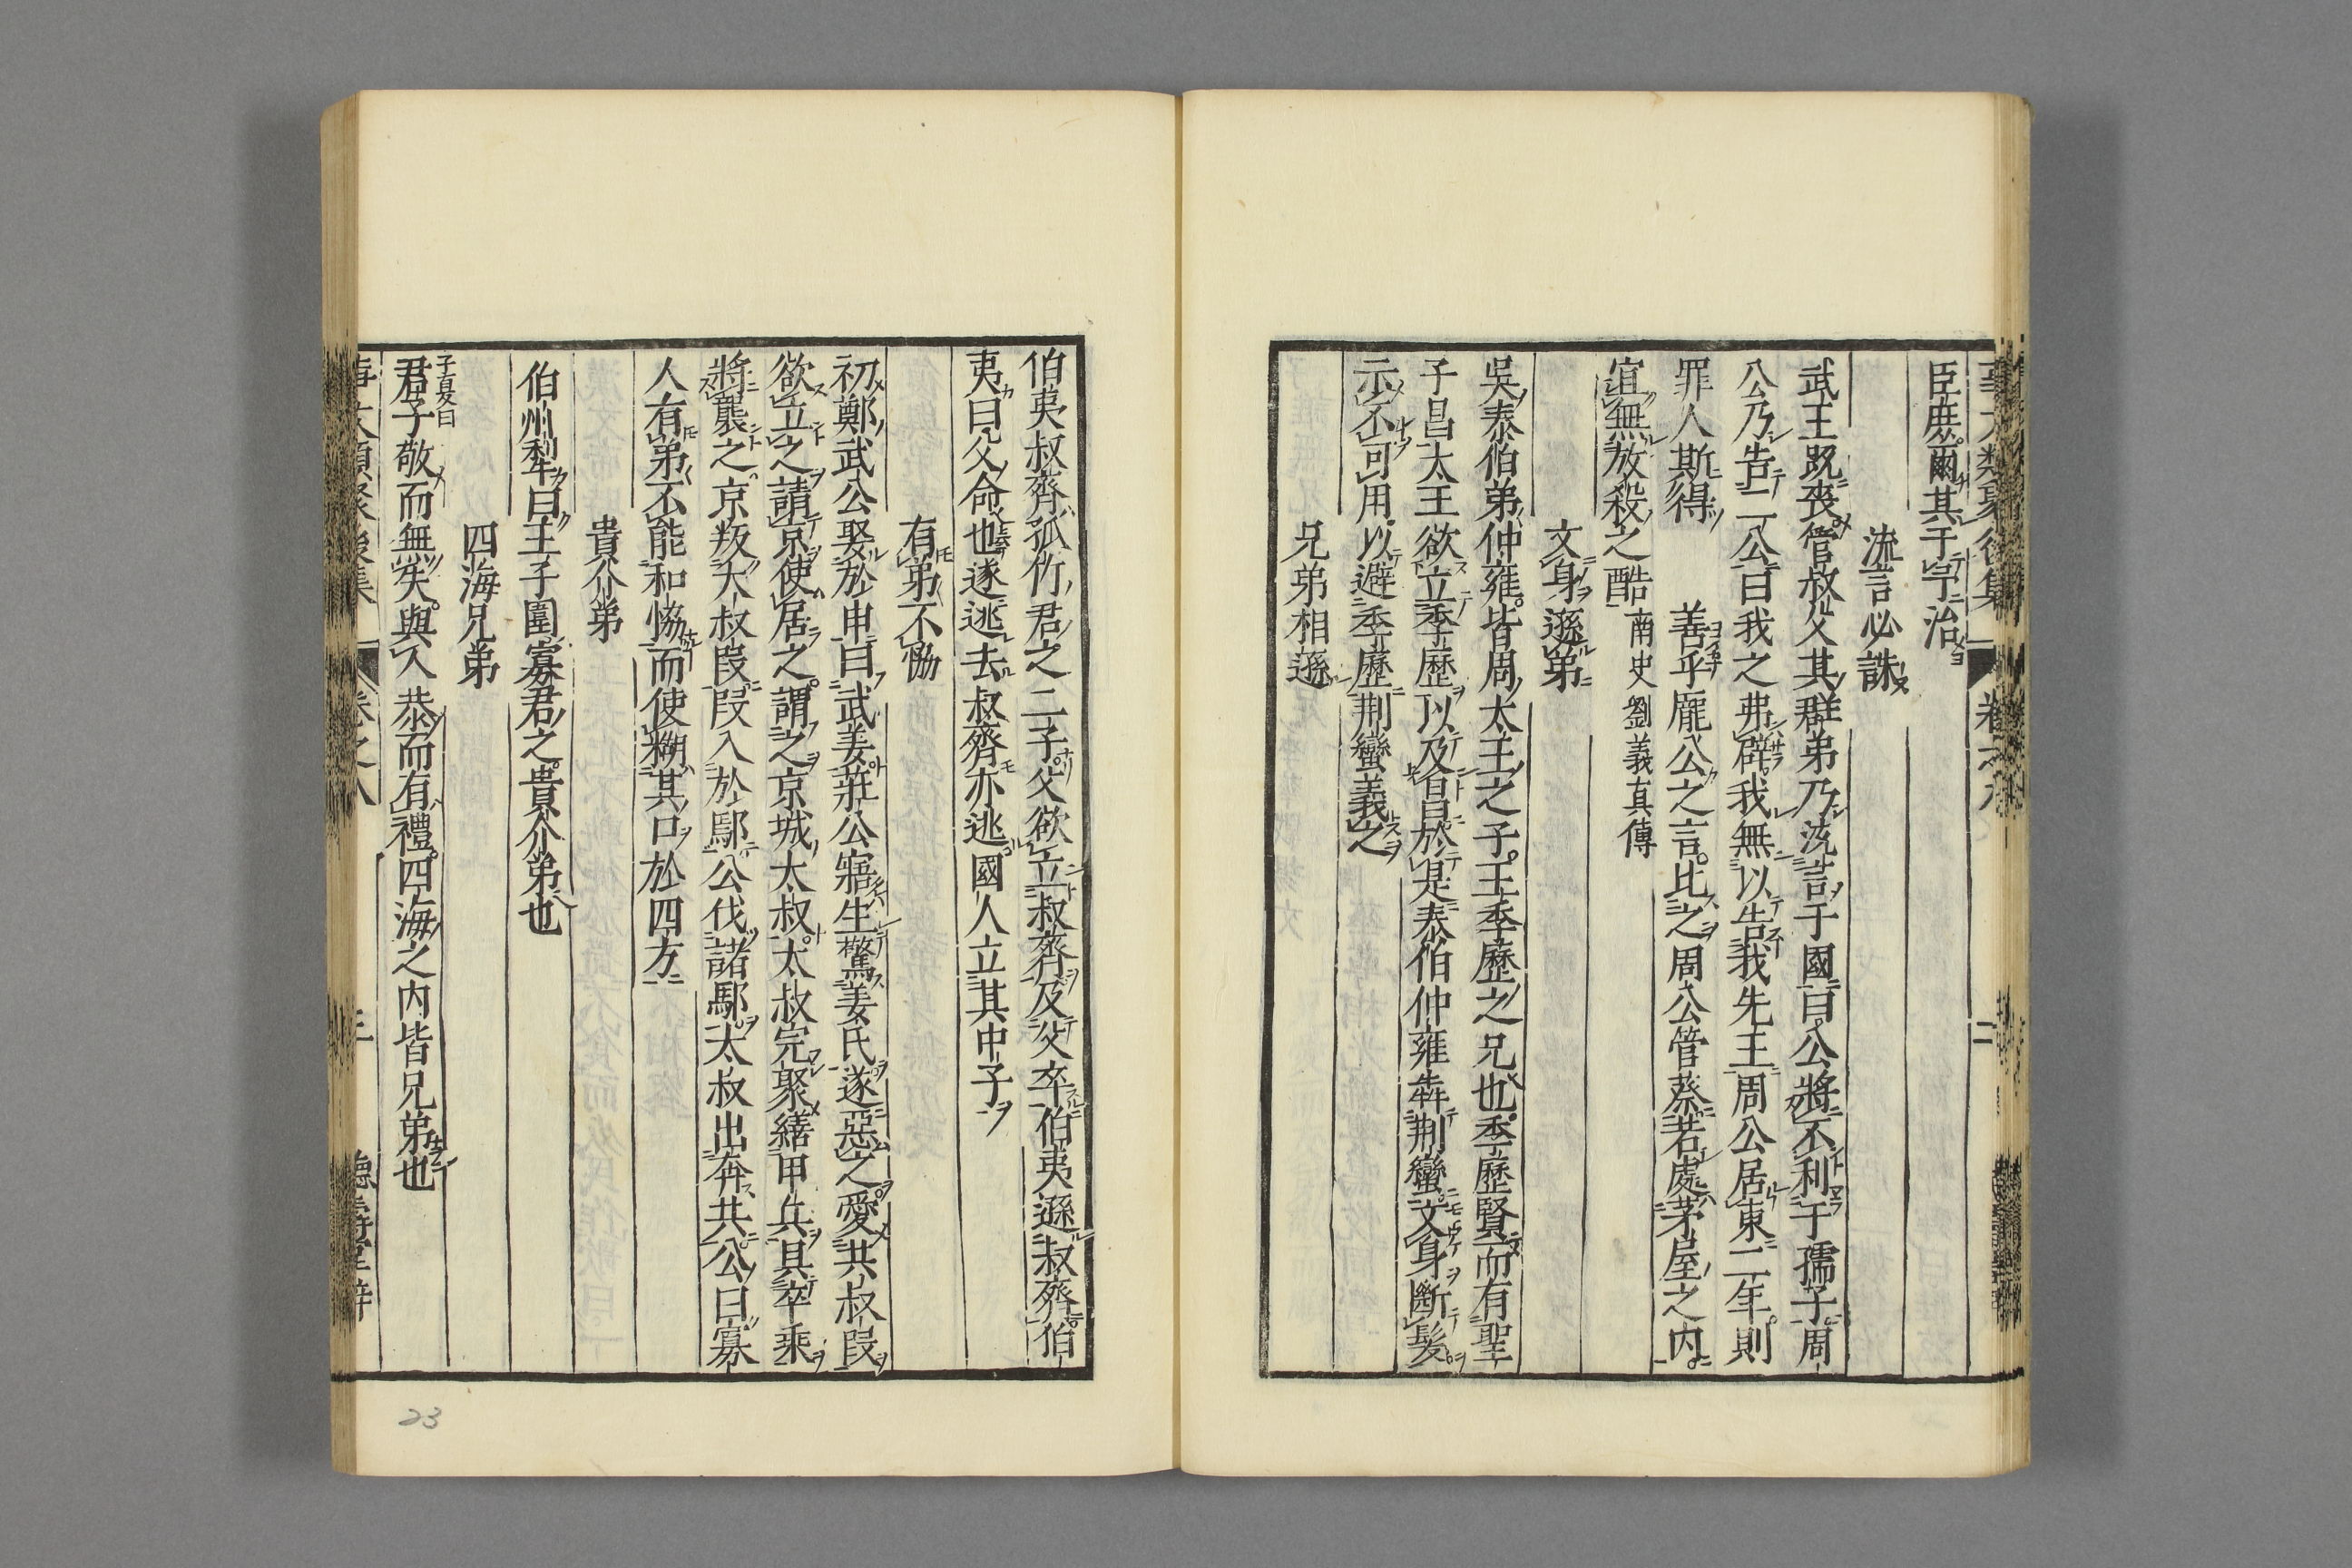 臣庶爾其于予治
流言必誅
武王既喪管叔父其群弟乃流言于國曰公將不利于孺子周
公乃告二公曰我之弗辟我無以告我先王周公居東二年則
罪人斯得 善乎龐公之言比之周公管蔡若處茅屋之内
宜無放殺之酷南史劉義真傳
文身遜弟
吳泰伯弟仲雍皆周太王之子王季歷之兄也季歷賢而有聖
子昌太王欲立季歷以及昌於是泰伯仲雍犇荆蠻文身斷髮
示不可用以避季歷荆蠻義之
兄弟相遜
伯夷叔齊孤竹君之二子父欲立叔齊及父卒伯夷遜叔齊伯
夷曰父命也遂逃去叔齊亦逃國人立其中子
有弟不恊
初鄭武公娶於申曰武姜莊公寤生驚姜氏遂惡之愛共叔段
欲立之請京使居之謂之京城大叔太叔完聚繕甲兵具卒乘
將襲之京叛大叔段段入於鄢公伐諸鄢太叔出奔共公曰寡
人有弟不能和恊而使糊其口於四方
貴介弟
伯州犁曰王子圍寡君之貴介弟也
四海兄弟
子夏曰
君子敬而無失與人恭而有禮四海之内皆兄弟也
卷之八
23